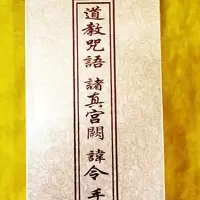 道教咒語 諸真宮闕 諱令 手